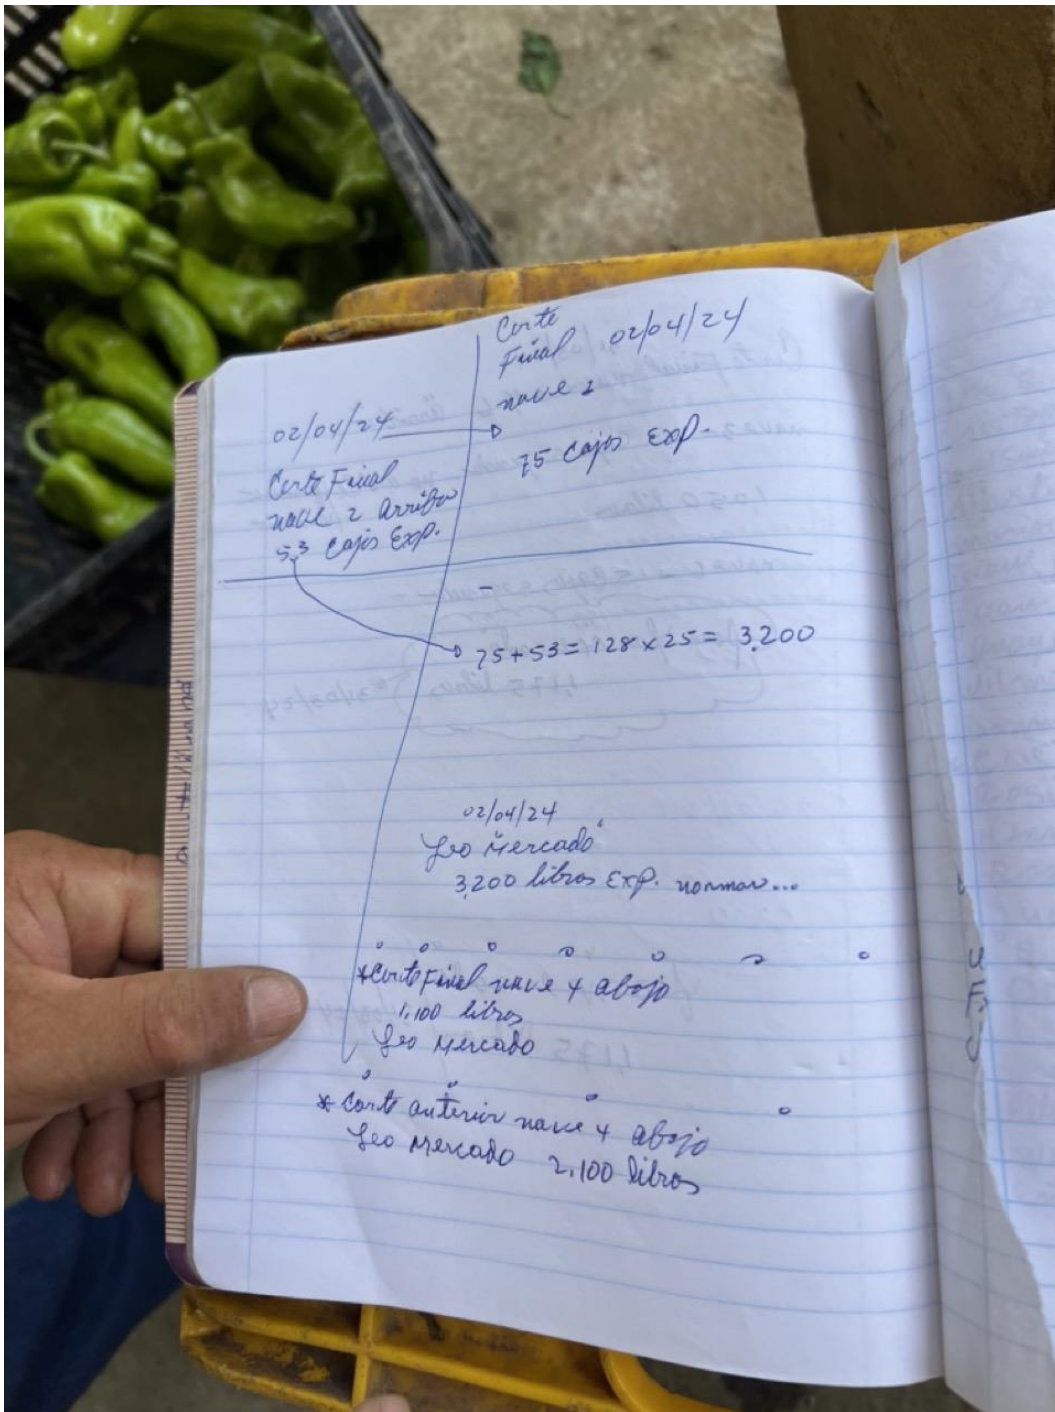 02/04/24
Corte Final
nave 2 arriba
53 Cajas Exp.
Corte
Final 02/04/24
nave 2
75 Cajas Exp.
75+53=128x25= 3,200
02/04/24
Leo Mercado
3,200 libras Exp. normar...
*Corte Final nave 4 abajo
1,100 libras
Leo Mercado
* Corte anterior nave 4 abajo
Leo Mercado 2,100 libras